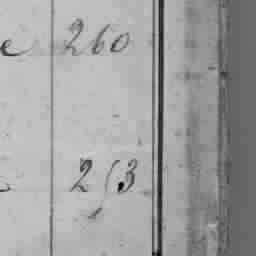 e 260
253